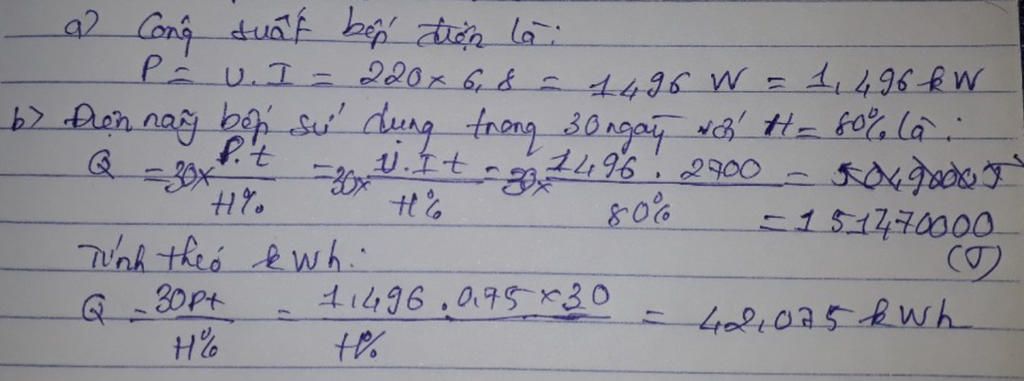 a) Công suất bếp điện là:
P = U.I = 220 x 6,8 = 1496 W = 1,496 kW
b) Điện năng bếp sử dụng trong 30 ngày với H = 80% là:
Q = 30x P.t / H% = 30x U.I t / H% = 30x 1496 . 2700 / 80%
= 151470000 (J)
Tính theo kWh:
Q = 30Pt / H% = 1,496 . 0,75 x 30 / H% = 42,075 kWh